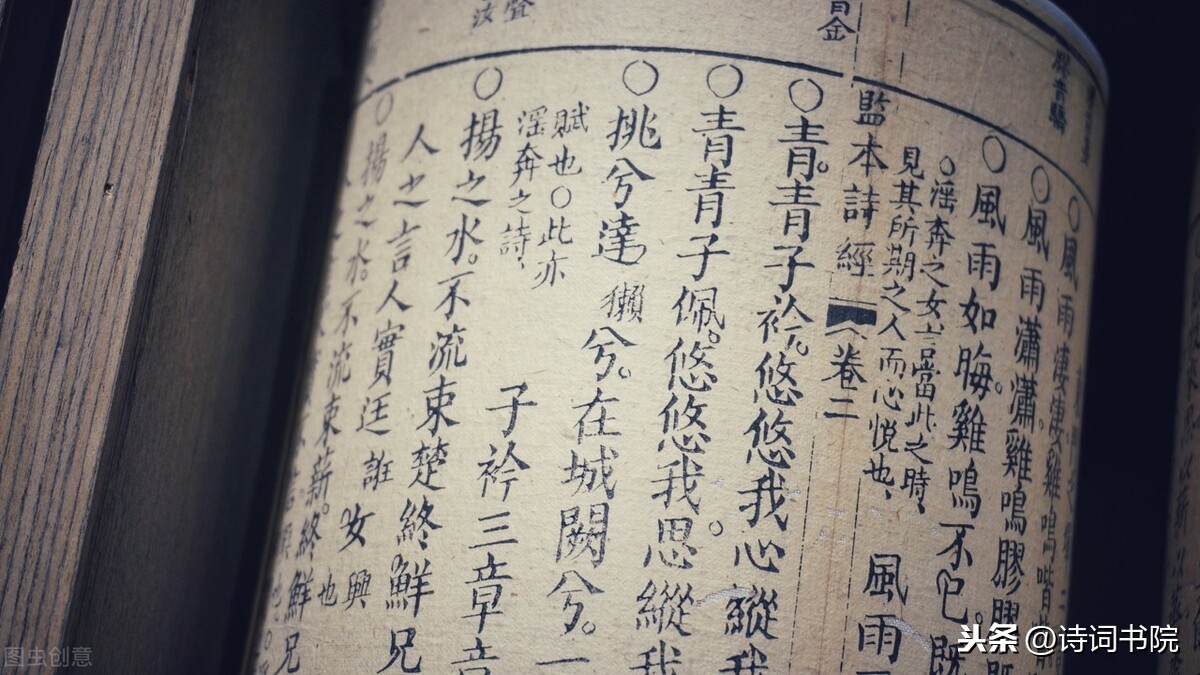 風雨淒淒雞鳴喈
風雨瀟瀟雞鳴膠膠
風雨如晦雞鳴不已既
淫奔之女言當此之時
見其所期之人而心悅也
風雨
監本詩經 卷二
青青子衿悠悠我心縱我
青青子佩悠悠我思縱我
挑兮達兮在城闕兮一
賦也○此亦
淫奔之詩
子衿三章章
揚之水不流束楚終鮮兄
人之言人實迋誑女 興也
揚之水不流束薪終鮮兄
头条 @诗词书院
图虫创意